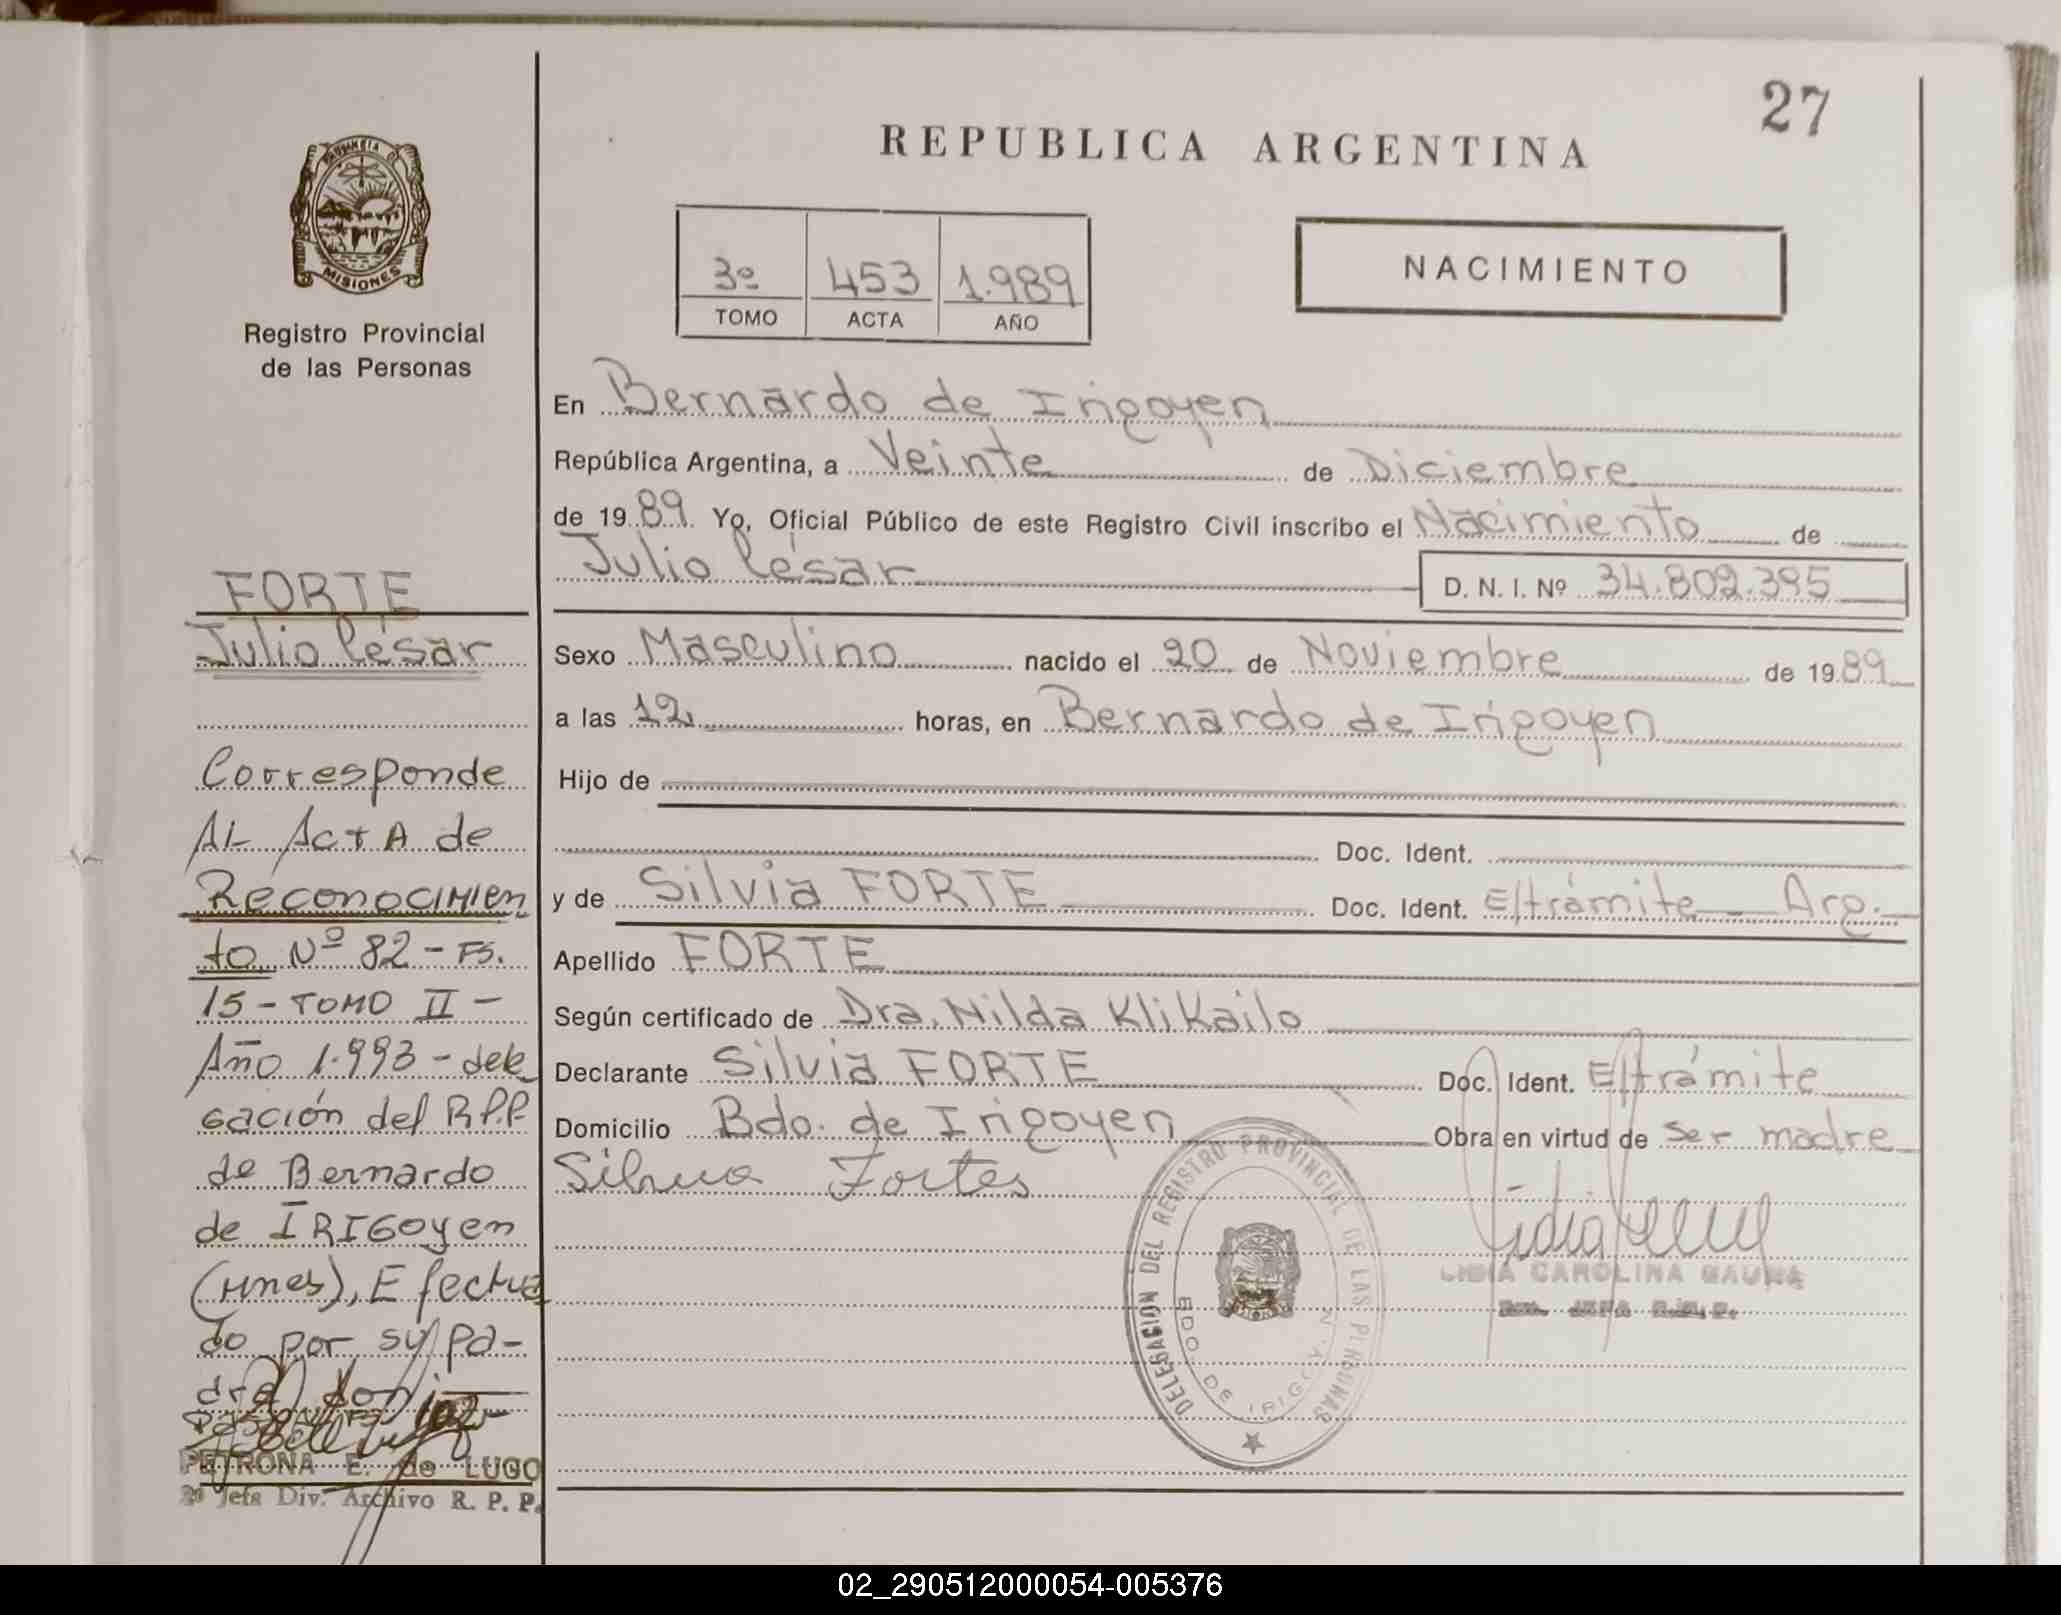 27
REPUBLICA ARGENTINA
PROVINCIA DE
MISIONES
Registro Provincial
de las Personas
3º 453 1.989
TOMO ACTA AÑO
NACIMIENTO
En Bernardo de Irigoyen
República Argentina, a Veinte de Diciembre
de 1989. Yo, Oficial Público de este Registro Civil inscribo el Nacimiento de
Julio César D. N. I. Nº 34.802.395
Sexo Masculino nacido el 20 de Noviembre de 1989
a las 12 horas, en Bernardo de Irigoyen
Hijo de
Doc. Ident.
y de Silvia FORTE Doc. Ident. E/trámite - Arg.
Apellido FORTE
Según certificado de Dra. Nilda Klikailo
Declarante Silvia FORTE Doc. Ident. E/trámite
Domicilio Bdo. de Irigoyen Obra en virtud de ser madre
Silvia Fortes
DELEGACION DEL REGISTRO PROVINCIAL DE LAS PERSONAS
BDO. DE IRIGOYEN
LIDIA CAROLINA GAUNA
FORTE
Julio César
Corresponde
AL ACTA de
Reconocimien
to Nº 82 - FS.
15 - TOMO II -
Año 1.993 - dele
gación del R.P.P
de Bernardo
de IRIGOYEN
(Mnes), Efectua
do por su pa-
dre don
PETRONA E. de LUGO
2º Jefa Div. Archivo R. P. P.
02_290512000054-005376